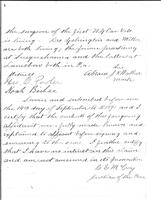 the surgeon of the First N.Y. Cav Vols
is living. Drs Yelvington and Miller
are both living, the former practicing
at Susquehanna and the latter at
both in Pa.
Attest
Geo. E.
Noah
Sworn and subscribed before me
the 14th day of September A D 1891 and I
certify that the contents of the foregoing
affidavit were fully made known and
explained to affiant before signing and
swearing to the same. I further certify
that I have no interest in this claim
and am not concerned in its prosecution
Justice of the Peace